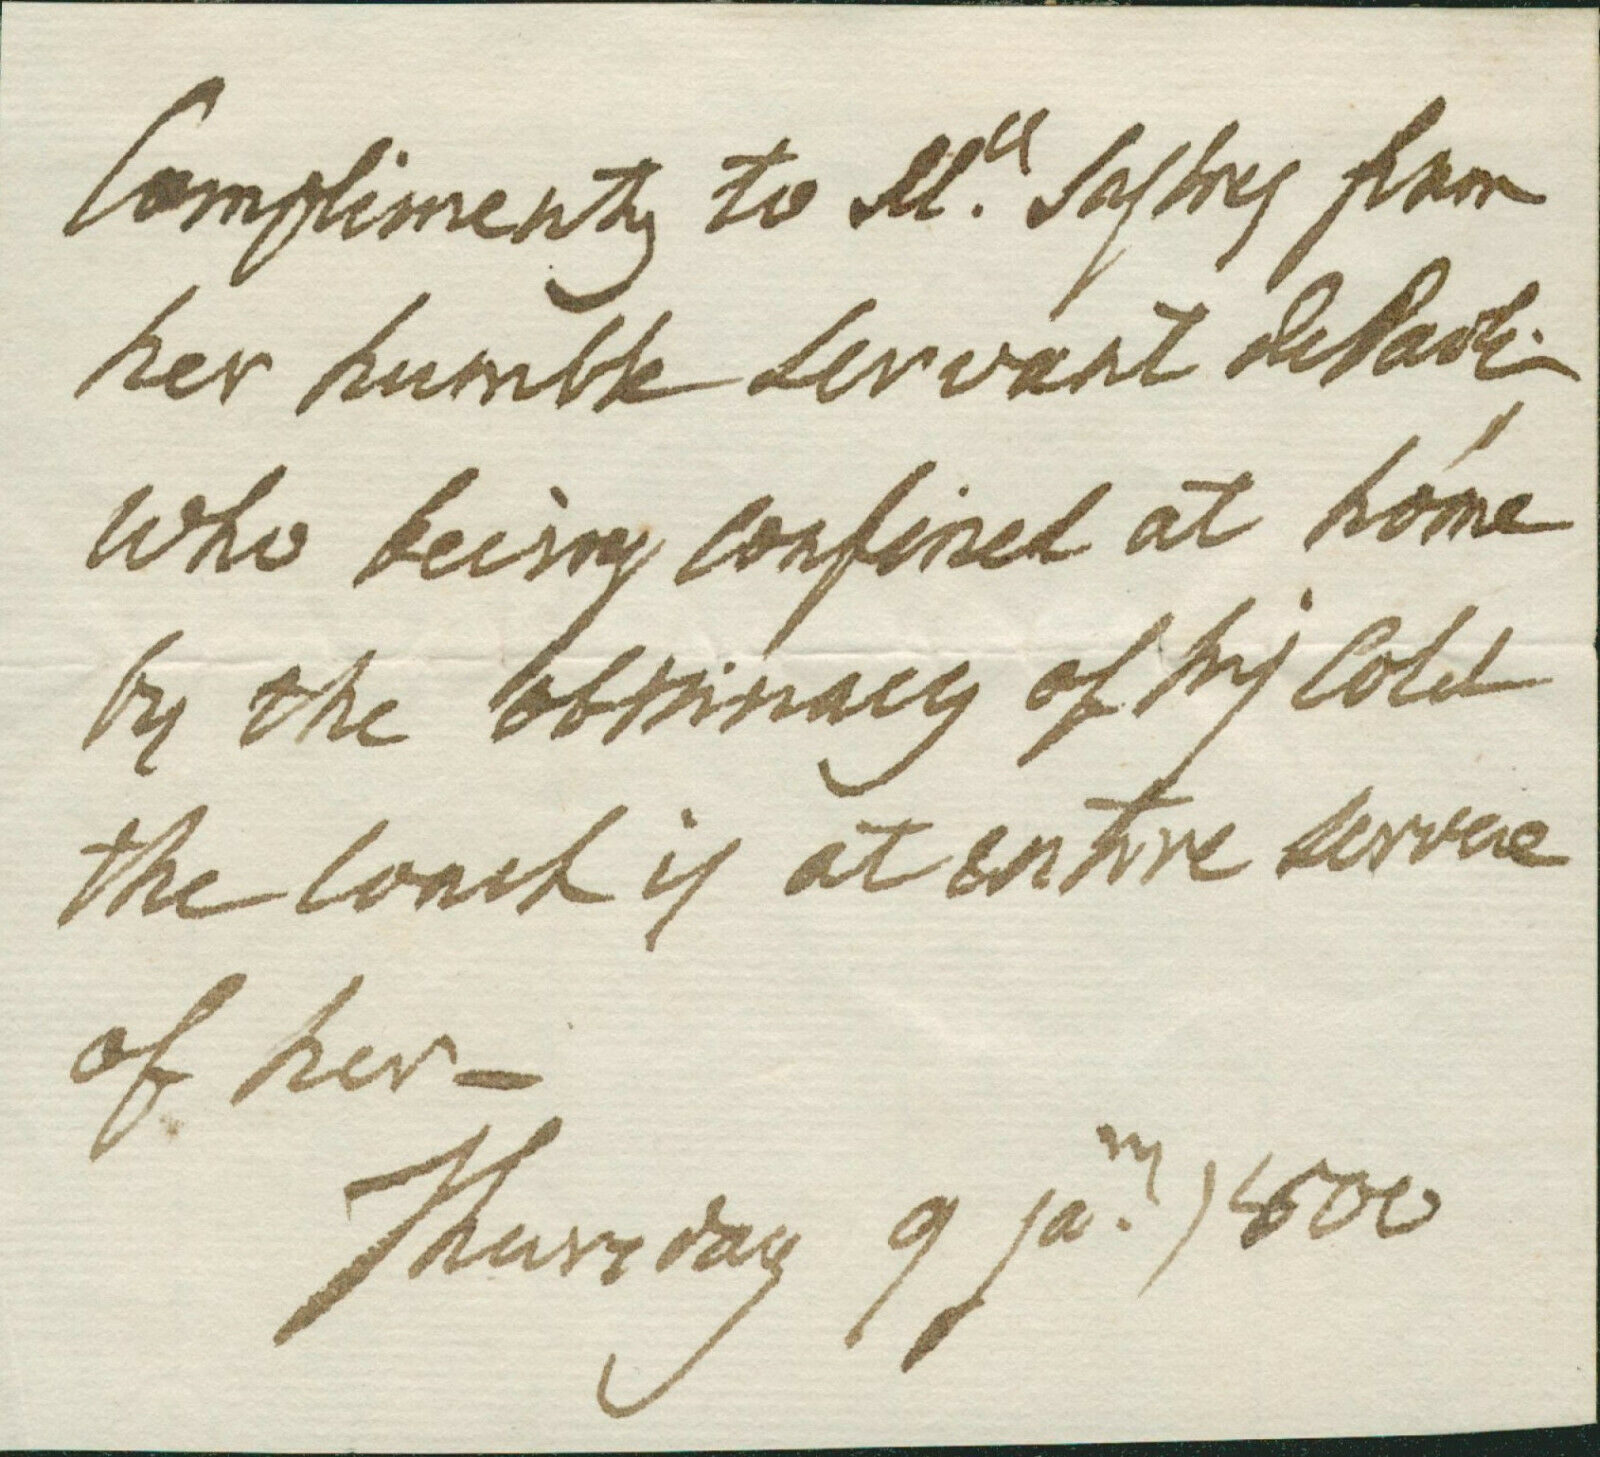 Compliments to M.ll Sastres from
her humble servant dePaoli.
who being confined at home
by the obstinacy of his Cold
the Coach is at entire service
of her —
Thursday 9 ja.ry 1800